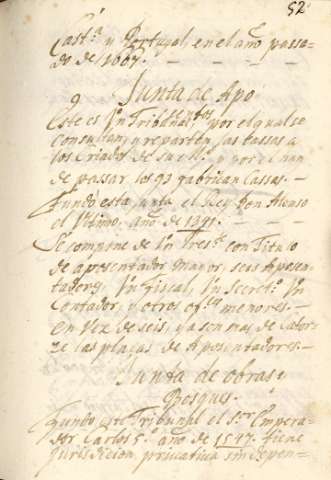 52
Cast.ª y Portugal, en el año passa-
do de 1667.
9 Junta de Apo.
Este es Vn Tribunal por el qual se
consultan, y reparten las cassas a
los Criados de su M. y por el han
de passar los q̃ fabrican Cassas.
Fundó esta Junta el Rey Don Alonso
el Vltimo, año de 1341.
Se compone de Vn Pres.te con Titulo
de aposentador mayor, seis Aposen-
tadores, Vn fiscal, Vn Secret.º Vn
Contador, y otros of.es menores.
en vez de seis, ya son mas de Cator-
ze las plaças de Aposentadores.
Junta de obras y
Bosques.
Fundó este Tribunal el S.or Empera-
dor Carlos 5.º año de 1547. tiene
Jurisdicion, privativa sin depen-